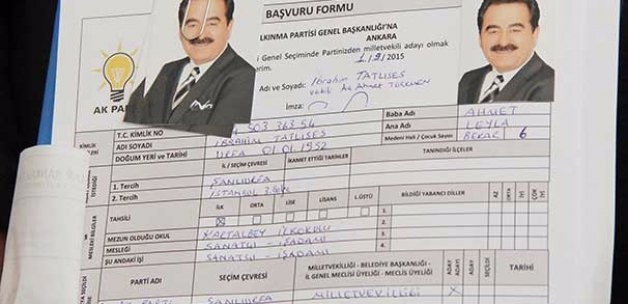 BAŞVURU FORMU
LKINMA PARTİSİ GENEL BAŞKANLIĞI'NA
ANKARA
i Genel Seçiminde Partinizden milletvekili adayı olmak
erim.
2015
Adı ve Soyadı: İbrahim TATLISES
Vekili Av. Ahmet
İmza:
AK PA
T.C. KİMLİK NO
ADI SOYADI İBRAHİM TATLISES
DOĞUM YERİ ve TARİHİ URFA 01.01.1952
Baba Adı AHMET
Ana Adı LEYLA
Medeni Hali / Çocuk Sayısı BEKAR 6
KİMLİK
İL / SEÇİM ÇEVRESİ İKAMET ETTİĞİ TARİHLER TANINDIĞI İLÇELER
1. Tercih ŞANLIURFA
2. Tercih İSTANBUL
TAHSİLİ İLK ORTA LİSE LİSANS L.ÜSTÜ
BİLDİĞİ YABANCI DİLLER AZ ORTA İYİ ÇOK İYİ
1.
2.
3.
4.
MEZUN OLDUĞU OKUL İLKOKULU
MESLEĞİ SANATÇI - İŞADAMI
ŞU ANDAKİ İŞİ SANATÇI - İŞADAMI
PARTİ ADI SEÇİM ÇEVRESİ MİLLETVEKİLLİĞİ - BELEDİYE BAŞKANLIĞI - İL GENEL MECLİSİ ÜYELİĞİ - MECLİS ÜYELİĞİ ADAY ADAYI ADAY SEÇİLDİ TARİHİ
ŞANLIURFA MİLLETVEKİLLİĞİ X